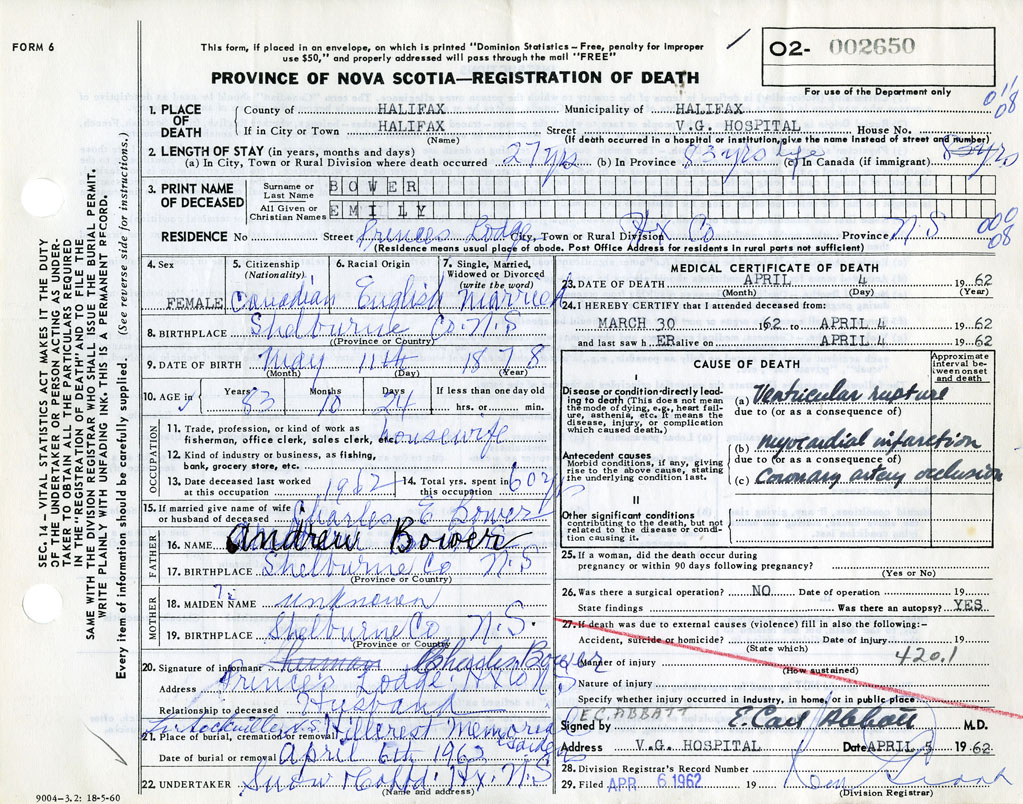 FORM 6
This form, if placed in an envelope, on which is printed "Dominion Statistics – Free, penalty for improper
use $50," and properly addressed will pass through the mail "FREE"
O2- 002650
PROVINCE OF NOVA SCOTIA—REGISTRATION OF DEATH
For use of the Department only
1. PLACE OF DEATH County of HALIFAX Municipality of HALIFAX
If in City or Town HALIFAX Street V.G. HOSPITAL House No.
(Name) (If death occurred in a hospital or institution, give the name instead of street and number)
2. LENGTH OF STAY (in years, months and days)
(a) In City, Town or Rural Division where death occurred 27 yrs (b) In Province 83 yrs (c) In Canada (if immigrant)
3. PRINT NAME OF DECEASED Surname or Last Name BOWER
All Given or Christian Names EMILY
RESIDENCE No Street Princes Lodge City, Town or Rural Division Hx Co Province N.S
(Residence means usual place of abode. Post Office Address for residents in rural parts not sufficient)
4. Sex FEMALE
5. Citizenship (Nationality) Canadian
6. Racial Origin English
7. Single, Married, Widowed or Divorced (write the word) Married
8. BIRTHPLACE Shelburne Co. N.S
(Province or Country)
9. DATE OF BIRTH May 11th 1878
(Month) (Day) (Year)
10. AGE in Years 83 Months 10 Days 24 If less than one day old
hrs. or min.
OCCUPATION
11. Trade, profession, or kind of work as
fisherman, office clerk, sales clerk, etc. housewife
12. Kind of industry or business, as fishing,
bank, grocery store, etc.
13. Date deceased last worked
at this occupation 1962
14. Total yrs. spent in
this occupation 60 yrs
15. If married give name of wife
or husband of deceased Charles E Bower
FATHER
16. NAME Andrew Bower
17. BIRTHPLACE Shelburne Co N.S
(Province or Country)
MOTHER
18. MAIDEN NAME unknown
19. BIRTHPLACE Shelburne Co N.S.
(Province or Country)
20. Signature of informant Charles Bower
Address Princes Lodge Hx Co N.S
Relationship to deceased Husband
21. Place of burial, cremation or removal Hillcrest Memorial Garden
Date of burial or removal April 6th 1962
22. UNDERTAKER Snow & Co Ltd. Hx. N.S
(Name and address)
9004-3.2: 18-5-60
MEDICAL CERTIFICATE OF DEATH
23. DATE OF DEATH APRIL 4 1962
(Month) (Day) (Year)
24. I HEREBY CERTIFY that I attended deceased from:
MARCH 30 1962 to APRIL 4 1962
and last saw h ER alive on APRIL 4 1962
CAUSE OF DEATH
Approximate interval between onset and death
I
Disease or condition directly leading to death (This does not mean the mode of dying, e.g., heart failure, asthenia, etc. It means the disease, injury, or complication which caused death.)
(a) Ventricular rupture
due to (or as a consequence of)
Antecedent causes
Morbid conditions, if any, giving rise to the above cause, stating the underlying condition last.
(b) myocardial infarction
due to (or as a consequence of)
(c) Coronary artery occlusion
II
Other significant conditions
contributing to the death, but not related to the disease or condition causing it.
25. If a woman, did the death occur during
pregnancy or within 90 days following pregnancy?
(Yes or No)
26. Was there a surgical operation? NO Date of operation 19
State findings Was there an autopsy? YES
27. If death was due to external causes (violence) fill in also the following:-
Accident, suicide or homicide? Date of injury 19
(State which)
420.1
Manner of injury
(How sustained)
Nature of injury
Specify whether injury occurred in industry, in home, or in public place
E.C. ABBATT
Signed by E. Carl Abbott M.D.
Address V.G. HOSPITAL Date APRIL 5 1962
28. Division Registrar's Record Number
29. Filed APR 6 1962 19
(Division Registrar)
SEC. 14 – VITAL STATISTICS ACT MAKES IT THE DUTY
OF THE UNDERTAKER OR PERSON ACTING AS UNDER-
TAKER TO OBTAIN ALL THE PARTICULARS REQUIRED
IN THE "REGISTRATION OF DEATH" AND TO FILE THE
SAME WITH THE DIVISION REGISTRAR WHO SHALL ISSUE THE BURIAL PERMIT.
WRITE PLAINLY WITH UNFADING INK. THIS IS A PERMANENT RECORD.
Every item of information should be carefully supplied. (See reverse side for instructions.)